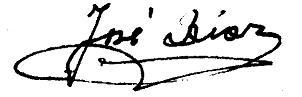 José Díaz